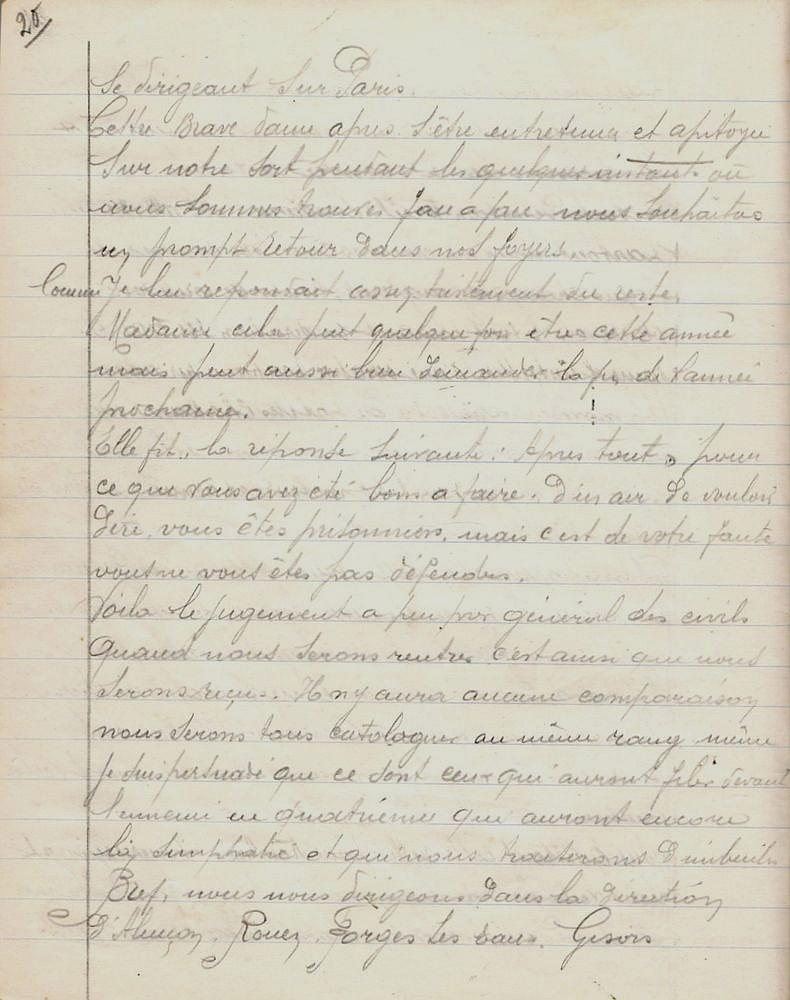 20
Se dirigeant sur Paris.
Cette Brave dame apres s'être entretenue et apitoyée
Sur notre Sort pendant les quelques instant où
nous Sommes trouvés face a face nous Souhaitas
un prompt retour dans nos foyers
Comme Je lui repondait assez tristement du reste,
Madame cela peut quelque fois être cette année
mais peut aussi bien demander la fin de l'année
prochaine. !
Elle fit, la réponse Suivante : Apres tout, pour
ce que vous avez été bons a faire. D'un air de vouloir
dire, vous êtes prisonniers, mais c'est de votre faute
vous ne vous êtes pas défendus.
Voila le jugement a peu pres général des civils
Quand nous Serons rentres c'est ainsi que nous
Serons reçus. Il n'y aura aucune comparaison
nous Serons tous catalogues au même rang même
Je Suis persuadé que ce Sont ceux qui auront filer devant
l'ennemi en quatrieme que auront encore
la Simphatie et qui nous traiterons d'imbeciles
Bref, nous nous dirigeons dans la direction
D'Alençon. Rouen. Forges les Eaux. Gisors